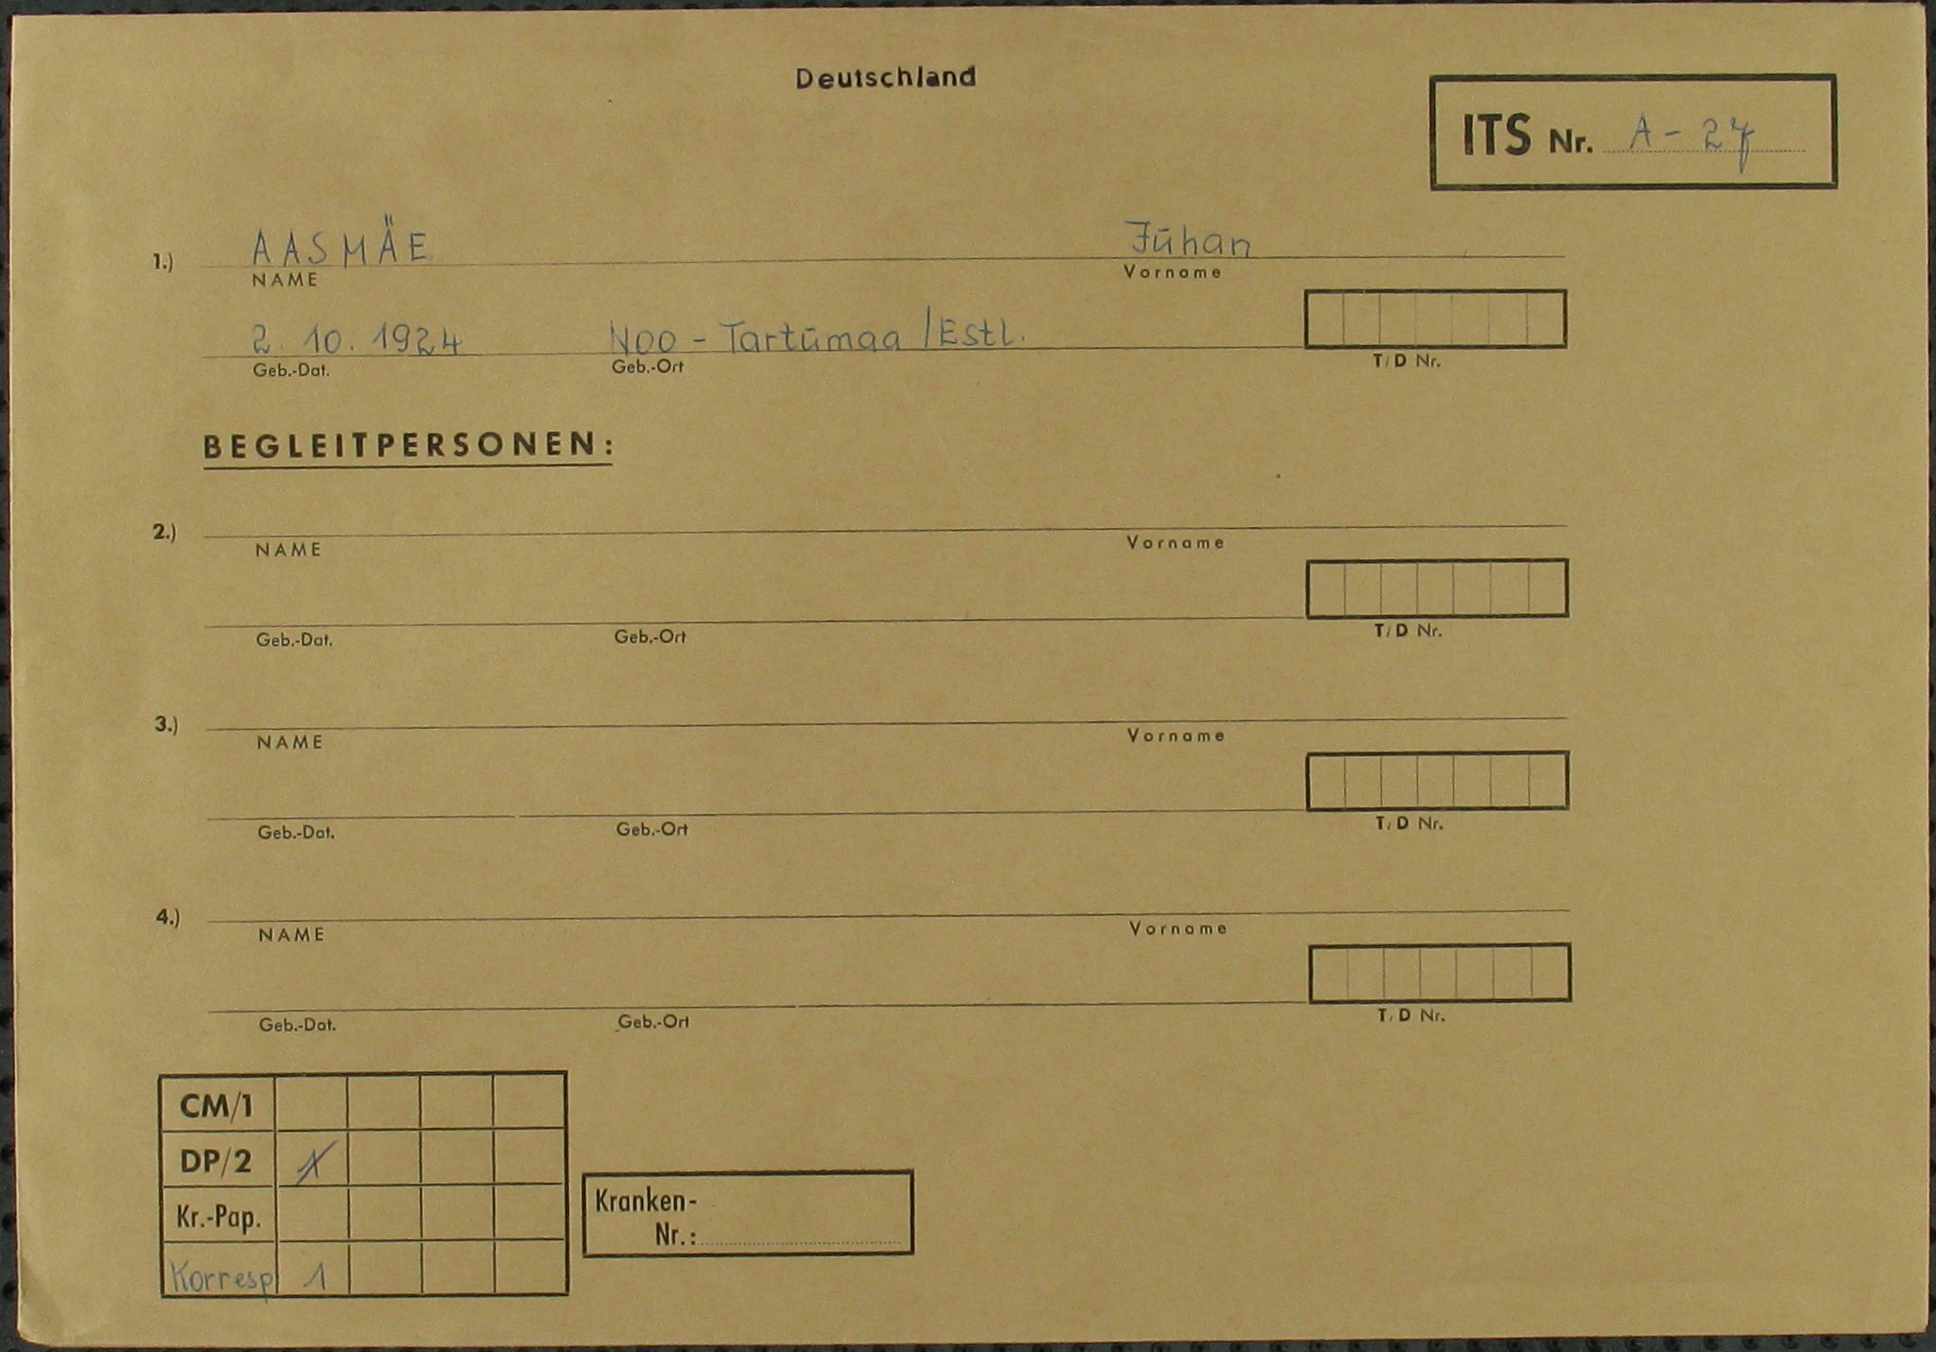 Deutschland
ITS Nr. A - 27
1.) AASMÄE Jūhan
NAME Vorname
2. 10. 1924 Noo - Tartūmaa /Estl.
Geb.-Dat. Geb.-Ort T/D Nr.
BEGLEITPERSONEN:
2.)
NAME Vorname
Geb.-Dat. Geb.-Ort T/D Nr.
3.)
NAME Vorname
Geb.-Dat. Geb.-Ort T/D Nr.
4.)
NAME Vorname
Geb.-Dat. Geb.-Ort T/D Nr.
CM/1
DP/2 1
Kr.-Pap.
Korresp 1
Kranken-
Nr.: